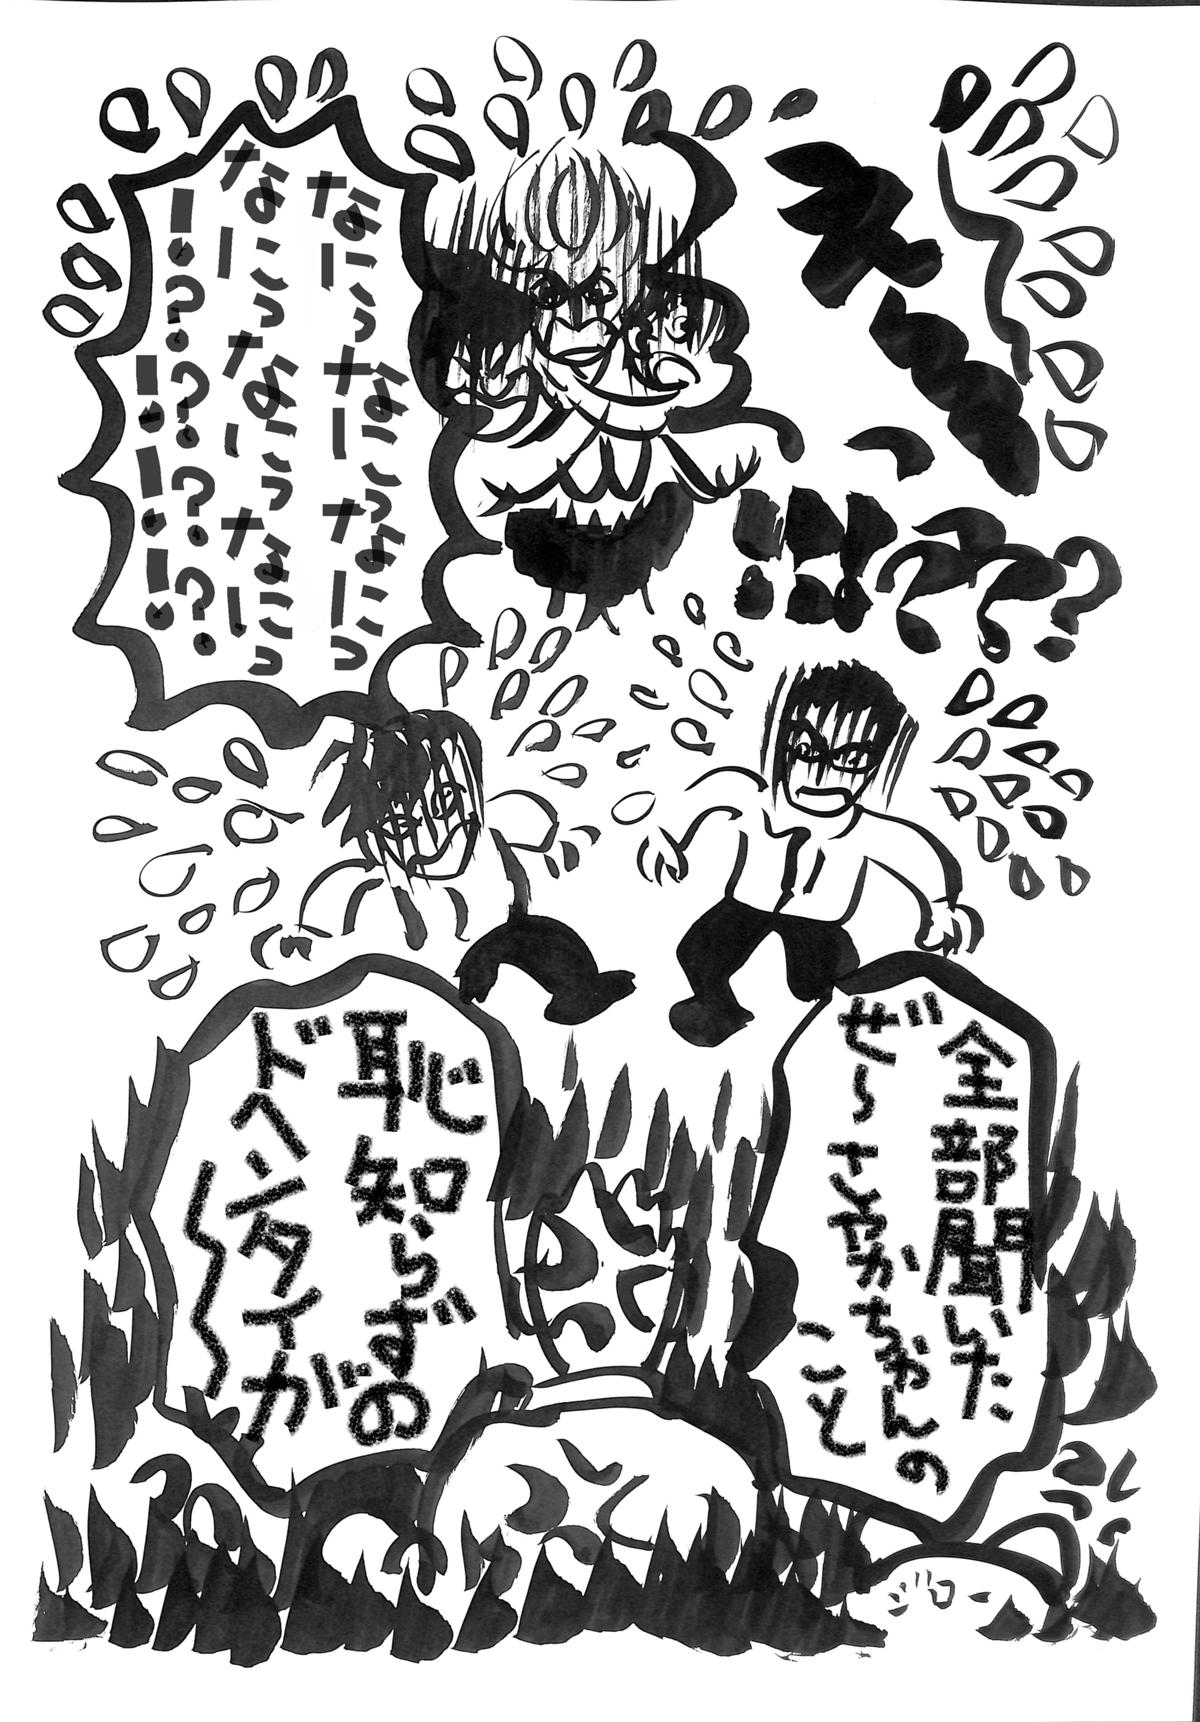 えーっ!!!???
なにっなにっなにっ
なにっなにっなにっ
!?????
!!!
全部聞いた
ぜ～さやかちゃんの
こと
恥知らずの
ドヘンタイが
～～
ジロー